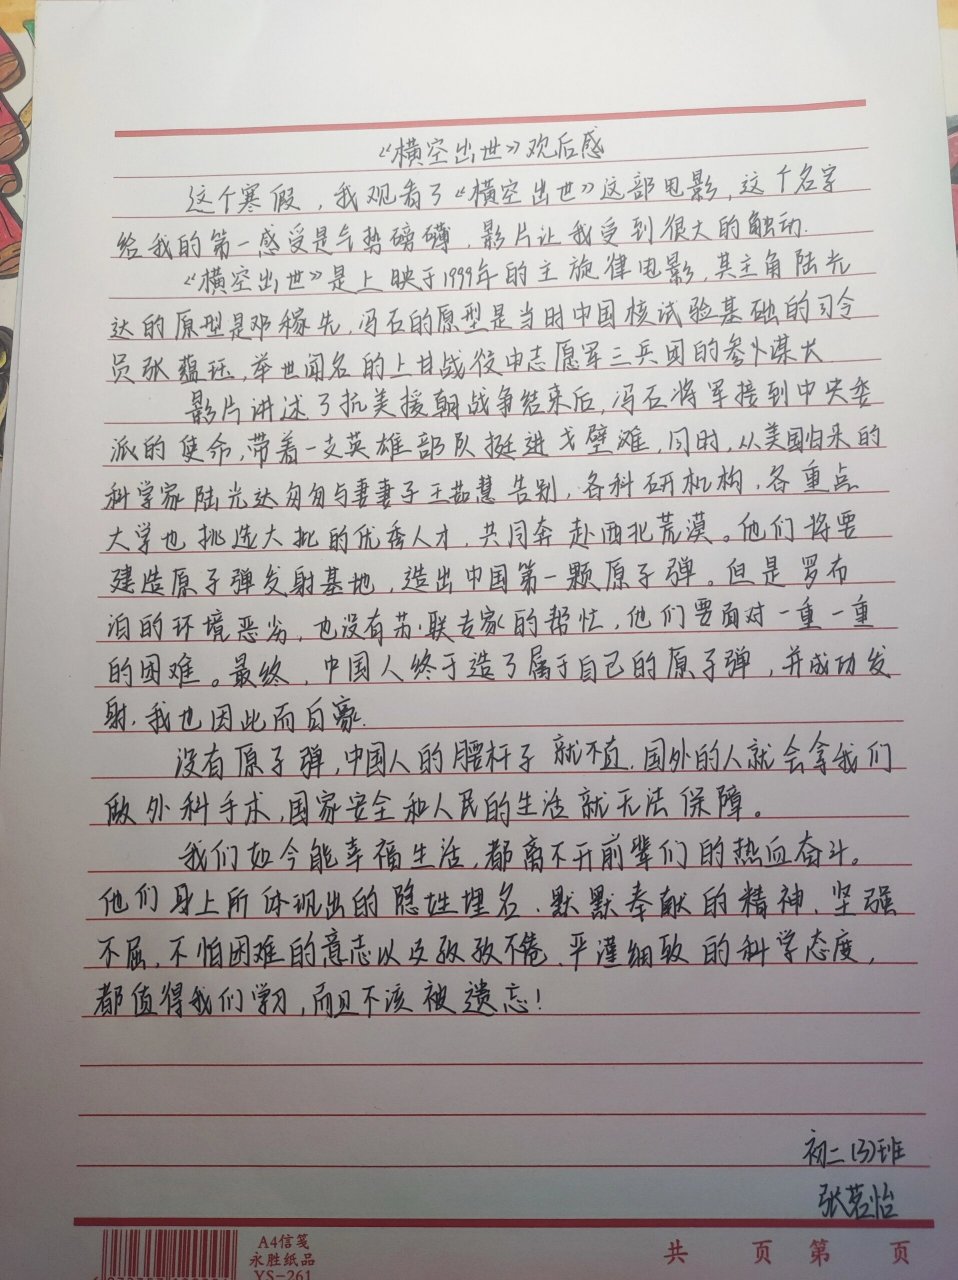 《横空出世》观后感
这个寒假，我观看了《横空出世》这部电影，这个名字
给我的第一感受是气势磅礴，影片让我受到很大的触动.
《横空出世》是上映于1999年的主旋律电影，其主角陆光
达的原型是邓稼先，冯石的原型是当时中国核试验基础的司令
员张蕴珏，举世闻名的上甘战役中志愿军三兵团的参谋长
影片讲述了抗美援朝战争结束后，冯石将军接到中央委
派的使命，带着一支英雄部队挺进戈壁滩，同时，从美国归来的
科学家陆光达匆匆与妻妻子王茹慧告别，各科研机构，各重点
大学也挑选大批的优秀人才，共同奔赴西北荒漠。他们将要
建造原子弹发射基地，造出中国第一颗原子弹。但是罗布
泊的环境恶劣，也没有苏联专家的帮忙，他们要面对一重一重
的困难。最终，中国人终于造了属于自己的原子弹，并成功发
射，我也因此而自豪.
没有原子弹，中国人的腰杆子就不直，国外的人就会拿我们
做外科手术，国家安全和人民的生活就无法保障。
我们如今能幸福生活，都离不开前辈们的热血奋斗。
他们身上所体现出的隐姓埋名、默默奉献的精神、坚强
不屈，不怕困难的意志以及孜孜不倦、严谨细致的科学态度，
都值得我们学习，而且不该被遗忘！
初二(3)班
张茗怡
A4信笺
永胜纸品
YS-261
共 页 第 页